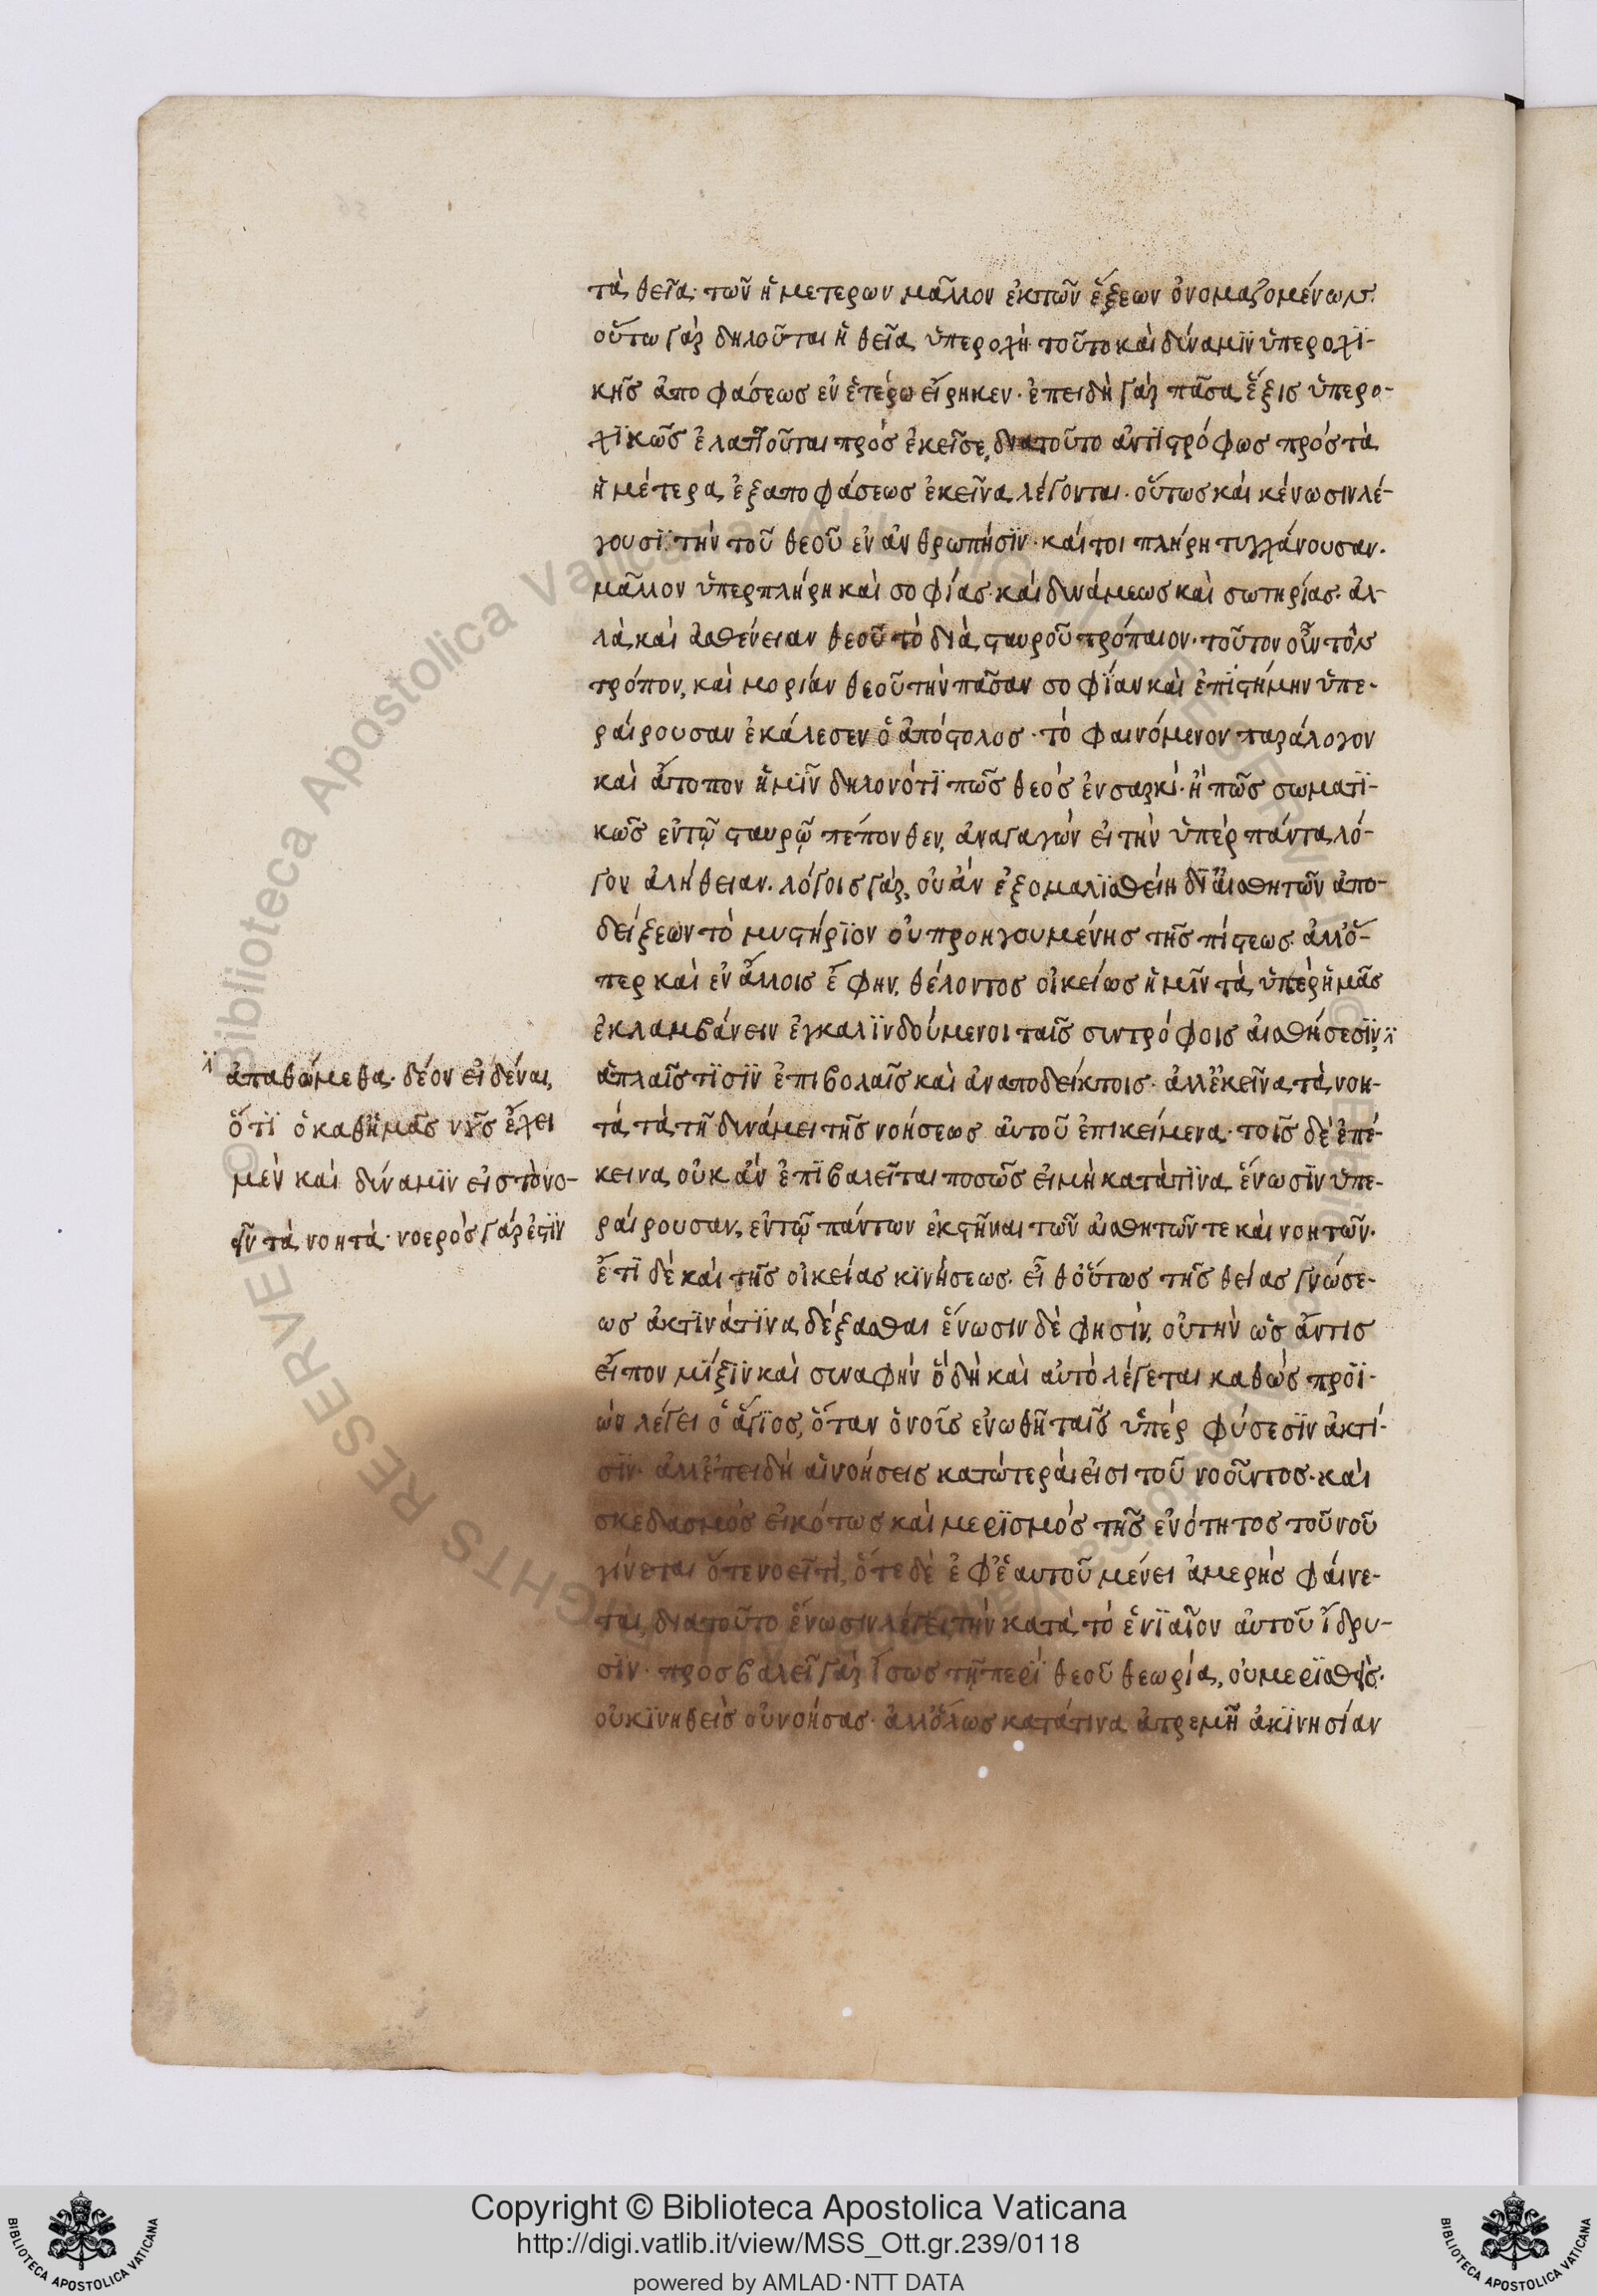 τὰ θεῖα· τῶν ἡμετερων μᾶλλον ἐκτῶν ἕξεων ὀνομαζομένων.
οὕτω γὰρ δηλοῦται ἡ θεῖα ὑπεροχή· τοῦτο καὶ δύναμϊν ὑπεροχϊ-
κῆς ἀποφάσεως ἐν ἑτέρω εἴρηκεν· ἐπειδὴ γὰρ πᾶσα ἕξις ὑπερο-
χϊκῶς ἐλαττοῦται πρὸς ἐκεῖσε, διατοῦτο ἀντϊστρόφως πρὸς τὰ
ἡμέτερα ἐξαποφάσεως ἐκεῖνα λέγονται· οὕτως καὶ κένωσιν λέ-
γουσϊ τὴν τοῦ θεοῦ ἐν ἀνθρωπήσϊν· καί τοι πλήρη τυγχάνουσαν·
μᾶλλον ὑπερπλήρη καὶ σοφίας· καὶ δυνάμεως καὶ σωτηρίας· ἀλ-
λὰ καὶ ἀσθένειαν θεοῦ τὸ διὰ σταυροῦ τρόπαιον· τοῦτον οὖν τὸν
τρόπον, καὶ μορίαν θεοῦ τὴν πᾶσαν σοφΐαν καὶ ἐπϊστήμην ὑπε-
ραίρουσαν ἐκάλεσεν ὁ ἀπόστολος· τὸ φαινόμενον παράλογον
καὶ ἄτοπον ἡμῖν δηλονότϊ πῶς θεὸς ἐνσαρκί· ἢ πῶς σωματϊ-
κῶς ἐντῷ σταυρῷ πέπονθεν, ἀναγαγὼν εἰ τὴν ὑπὲρ πάντα λό-
γον ἀλήθειαν. λόγοις γὰρ, οὐ ἀν ἐξομαλϊσθείη δϊ αἰσθητῶν ἀπο-
δείξεων τὸ μυστήρϊον οὐ προηγουμένης τῆς πίστεως· ἀλλ' ὅ-
περ καὶ ἐν ἄλλοις ἔφην, θέλοντος οἰκείως ἡμῖν τὰ ὑπὲρ ἡμᾶς
ἐκλαμβάνειν ἐγκαλϊνδούμενοι ταῖς συντρόφοις αἰσθήσεσϊν,
ἀπαθώμεθα· δέον εἰδέναι,
ὅτϊ ὁ καθ' ἡμᾶς νοῦς ἔχει
μὲν καὶ δύναμϊν εἰς τὸ νο-
εῖν τὰ νοητά· νοερὸς γάρ ἐστϊν
ἁπλαῖς τϊσὶν ἐπιβολαῖς καὶ ἀναποδείκτοις· ἀλλ' ἐκεῖνα τὰ νοη-
τά τὰ τῆ δυνάμει τῆς νοήσεως αὐτοῦ ἐπικείμενα· τοῖς δὲ ἐπέ-
κεινα οὐκ ἂν ἐπϊβαλεῖται ποσῶς εἰμὴ κατὰ τϊνα ἕνωσϊν ὑπε-
ραίρουσαν, ἐντῷ πάντων ἐκστῆναι τῶν αἰσθητῶν τε καὶ νοητῶν·
ἔτϊ δὲ καὶ τῆς οἰκείας κϊνήσεως· εἶθ' οὕτως τῆς θείας γνώσε-
ως ἀκτῖνά τϊνα δέξασθαι ἕνωσιν δέ φησὶν, οὐ τὴν ὡς ἄν τις
εἶπον μΐξϊν καὶ συναφὴν ὃ δὴ καὶ αὐτὸ λέγεται καθὼς προϊ-
ὼν λέγει ὁ ἅγϊος, ὅταν ὁ νοῦς ἐνωθῆ ταῖς ὑπὲρ φύσεσϊν ἀκτί-
σϊν· ἀλλ' ἐπειδὴ αἱ νοήσεις κατώτεραί εἰσι τοῦ νοοῦντος· καὶ
σκεδασμὸς εἰκότως καὶ μερϊσμὸς τῆς ἑνότητος τοῦ νοῦ
γίνεται ὅτε νοεῖ τί, ὅτε δὲ ἐφ' ἑαυτοῦ μένει ἀμερὴς φαίνε-
ται, διατοῦτο ἕνωσιν λέγει τὴν κατὰ τὸ ἑνϊαῖον αὐτοῦ ἵδρυ-
σϊν· προσβαλεῖ γὰρ ἴσως τῆ περὶ θεοῦ θεωρία, οὐ μερϊσθείς·
οὐ κϊνηθεὶς οὐ νοήσας· ἀλλ' ὅλως κατά τινα ἀτρεμῆ ἀκϊνησίαν
Copyright © Biblioteca Apostolica Vaticana
http://digi.vatlib.it/view/MSS_Ott.gr.239/0118
powered by AMLAD·NTT DATA